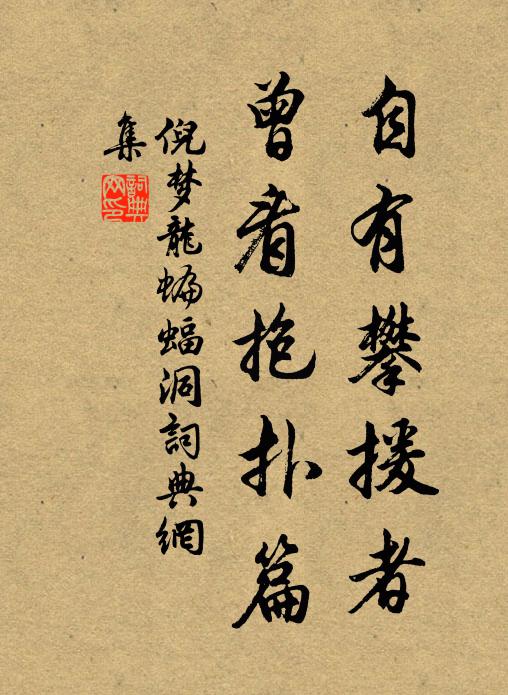 自有攀援者
曾看抱扑篇
倪梦龍蝙蝠洞詞典網
集
詞典网印